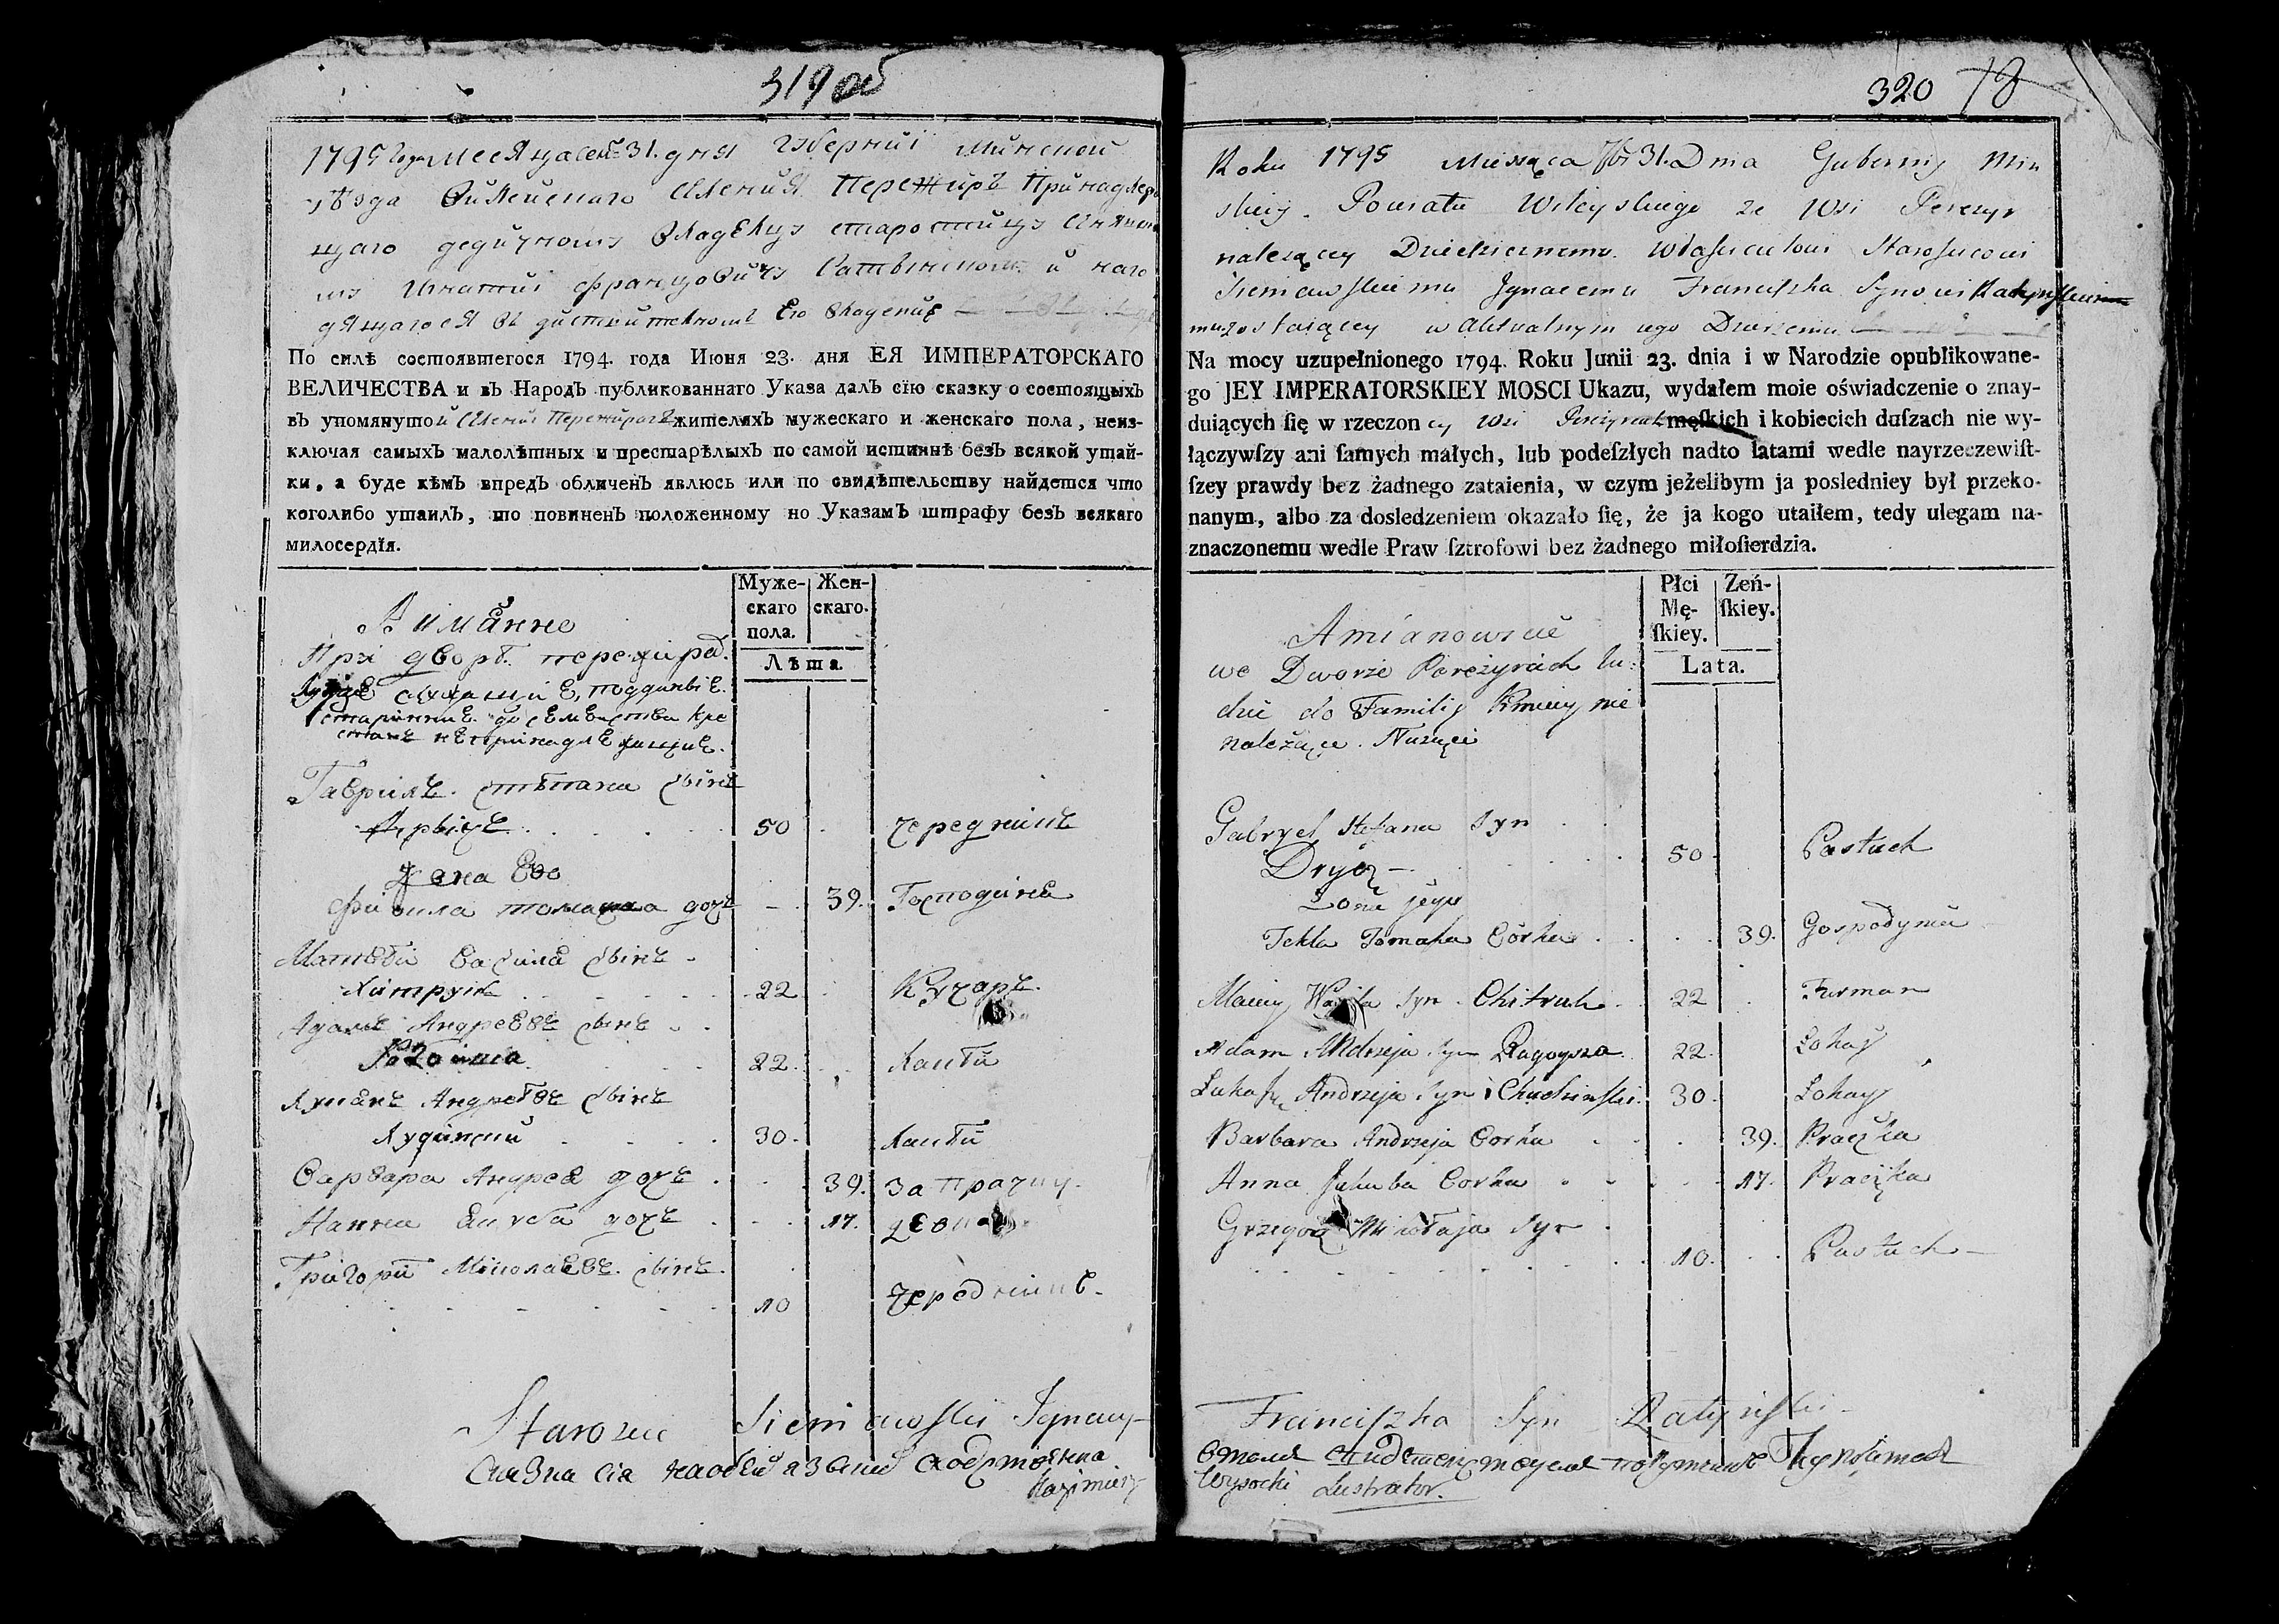 319 об
1795 Года Месяца 31. дня Губернии Минской
уѣзда Вилейского Селения Пережиръ Принадлежа
щаго дедичному владельцу старостицу
Игнатий Францовичу и
Его владение
По силѣ состоявшегося 1794. года Июня 23. дня ЕЯ ИМПЕРАТОРСКАГО
ВЕЛИЧЕСТВА и въ Народъ публикованнаго Указа далъ сїю сказку о состоящыхъ
въ упомянутой Селении Пережирахъ жителяхъ мужескаго и женскаго пола, неиз-
ключая самыхъ малолѣтныхъ и престарѣлыхъ по самой истиннѣ безъ всякой утай-
ки, а буде кѣмъ впредъ обличенъ явлюсь или по свидѣтельству найдется что
коголибо утаилъ, то повиненъ положенному по Указамъ штрафу безъ всякаго
милосердїя.
Муже-
скаго
пола.
Жен-
скаго.
Лѣта
При дворѣ пережирах.
подданыіе
Гаврилъ Стѣпана сынъ
Дрыче 50 Чередникъ
Жена Его
Томаша дочь 39. Господиня
Матвѣй Василя сынъ
Хитрукъ 22 Кучаръ.
Адамъ Андреевъ сынъ
22. Лакѣй
Лукашъ Андреевъ сынъ
Худинский 30. Лакѣй
Варвара Андрея дочь 39. За Прачку.
Ганна Якуба дочь 17.
Григорѣй Миколаевъ сынъ.
10 Чередникъ.
Starościc Siemiawski Ignacy
Сказка сія
Kazimierz
320 78
Roku 1795 Miesiąca 31. Dnia Gubernij Min
skiej Powiatu Wileyskiego ze Wsi Pereżyr
należącey Dziedzicznemu Właścicielowi Starościcowi
Siemiawskiemu Jgnacemu Franciszka Synowi Ratyńskie
mu zostaiącey w Aktualnym iego Dzierżeniu
Na mocy uzupełnionego 1794. Roku Junii 23. dnia i w Narodzie opublikowane-
go JEY IMPERATORSKIEY MOSCI Ukazu, wydałem moie oświadczenie o znay-
duiących ſię w rzeczoney Wsi Pereżyrach męſkich i kobiecich duſzach nie wy-
łączywſzy ani ſamych małych, lub podeſzłych nadto latami wedle nayrzeczewiſt-
ſzey prawdy bez żadnego zataienia, w czym jeżelibym ja posledniey był przeko-
nanym, albo za dosledzeniem okazało ſię, że ja kogo utaiłem, tedy ulegam na-
znaczonemu wedle Praw ſztrofowi bez żadnego miłoſierdzia.
Płci
Mę-
ſkiey.
Zeń-
ſkiey.
Lata.
we Dworze Pereżyrach lu:
dzie do Familij Kmiecy nie
należące.
Gabryel Stefana Syn
Drycz 50 Pastuch
Żona jego
Tekla Tomasza Córka 39. Gospodynia
Maciey Wasila Syn Chitruk 22 Furman
Adam Andrzeja Syn Ragoysza 22. Lokay
Łukasz Andrzeja Syn Chudzinski 30. Lokay
Barbara Andrzeja Corka 39. Praczka
Anna Jakuba Corka 17. Praczka
Grzegorz Mikołaja Syn
10. Pastuch
Franciszka Syn Ratyński
Wysocki Lustrator.